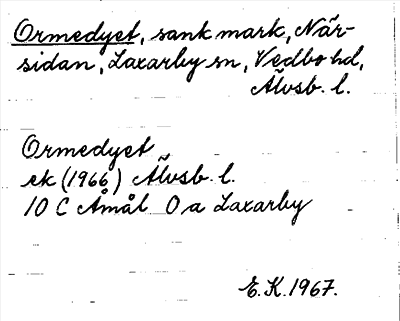 Ormedyet, sank mark, När-
sidan, Laxarby sn, Vedbo hd,
Älvsb. l.
Ormedyet
ek (1966) Älvsb. l.
10 C Åmål O a Laxarby
E.K. 1967.